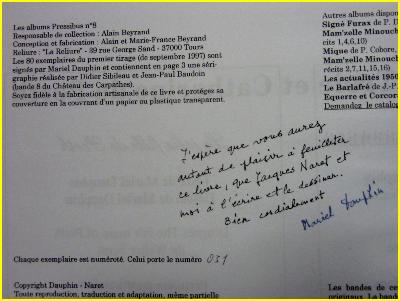 Les albums Pressibus n°8
Responsable de collection : Alain Beyrand
Conception et fabrication : Alain et Marie-France Beyrand
Reliure : "La Reliure" - 39 rue George Sand - 37000 Tours
Les 80 exemplaires du premier tirage (de septembre 1997) sont
signés par Mariel Dauphin et contiennent en page 3 une séri-
graphie réalisée par Didier Sibileau et Jean-Paul Baudoin
(bande 8 du Château des Carpathes).
Soyez fidèle à la fabrication artisanale de ce livre et protégez sa
couverture en la couvrant d'un papier ou plastique transparent.
J'espère que vous aurez
autant de plaisir à feuilleter
ce livre, que Jacques Naret et
moi à l'écrire et le dessiner.
Bien cordialement
Mariel Dauphin
Chaque exemplaire est numéroté. Celui porte le numéro 031
Copyright Dauphin - Naret
Toute reproduction, traduction et adaptation, même partielle
Autres albums dispon
Signé Furax de P. D
Mam'zelle Minouch
cits 1,4,6,10)
Mique de P. Cobore,
Mam'zelle Minouch
récits 2,7,11,15,16)
Les actualités 1950
Le Barlafré de J.-P
Equerre et Corcora
Demandez le catalo
Les bandes de ce
originaux. La band